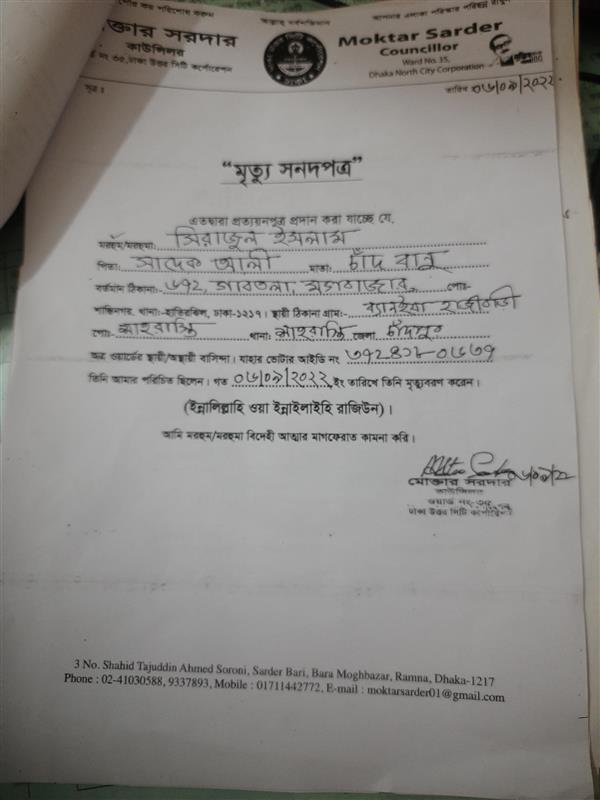 আল্লাহ সর্বশক্তিমান
ক্তার সরদার
কাউন্সিলর
নং ৩৫, ঢাকা উত্তর সিটি কর্পোরেশন
Moktar Sarder
Councillor
Ward No. 35,
Dhaka North City Corporation
সূত্র ঃ
তারিখ ০৬/০৯/২০২২
"মৃত্যু সনদপত্র"
এতদ্বারা প্রত্যয়নপত্র প্রদান করা যাচ্ছে যে,
মরহুম/মরহুমা: সিরাজুল ইসলাম
পিতা: সাদেক আলী মাতা: চাঁদ বানু
বর্তমান ঠিকানা:- ৬৭২, গাবতলা, মগবাজার, পো:-
শান্তিনগর, থানা:-হাতিরঝিল, ঢাকা-১২১৭। স্থায়ী ঠিকানা গ্রাম:-
পো:- শাহরাস্তি থানা: শাহরাস্তি জেলা চাঁদপুর
অত্র ওয়ার্ডের স্থায়ী/অস্থায়ী বাসিন্দা। যাহার ভোটার আইডি নং
তিনি আমার পরিচিত ছিলেন। গত ০৬/০৯/২০২২ ইং তারিখে তিনি মৃত্যুবরণ করেন।
(ইন্নালিল্লাহি ওয়া ইন্নাইলাইহি রাজিউন)।
আমি মরহুম/মরহুমা বিদেহী আত্মার মাগফেরাত কামনা করি।
০৬/০৯/২২
মোক্তার সরদার
কাউন্সিলর
ওয়ার্ড নং-৩৫
ঢাকা উত্তর সিটি কর্পোরেশন
3 No. Shahid Tajuddin Ahmed Soroni, Sarder Bari, Bara Moghbazar, Ramna, Dhaka-1217
Phone : 02-41030588, 9337893, Mobile : 01711442772, E-mail : moktarsarder01@gmail.com